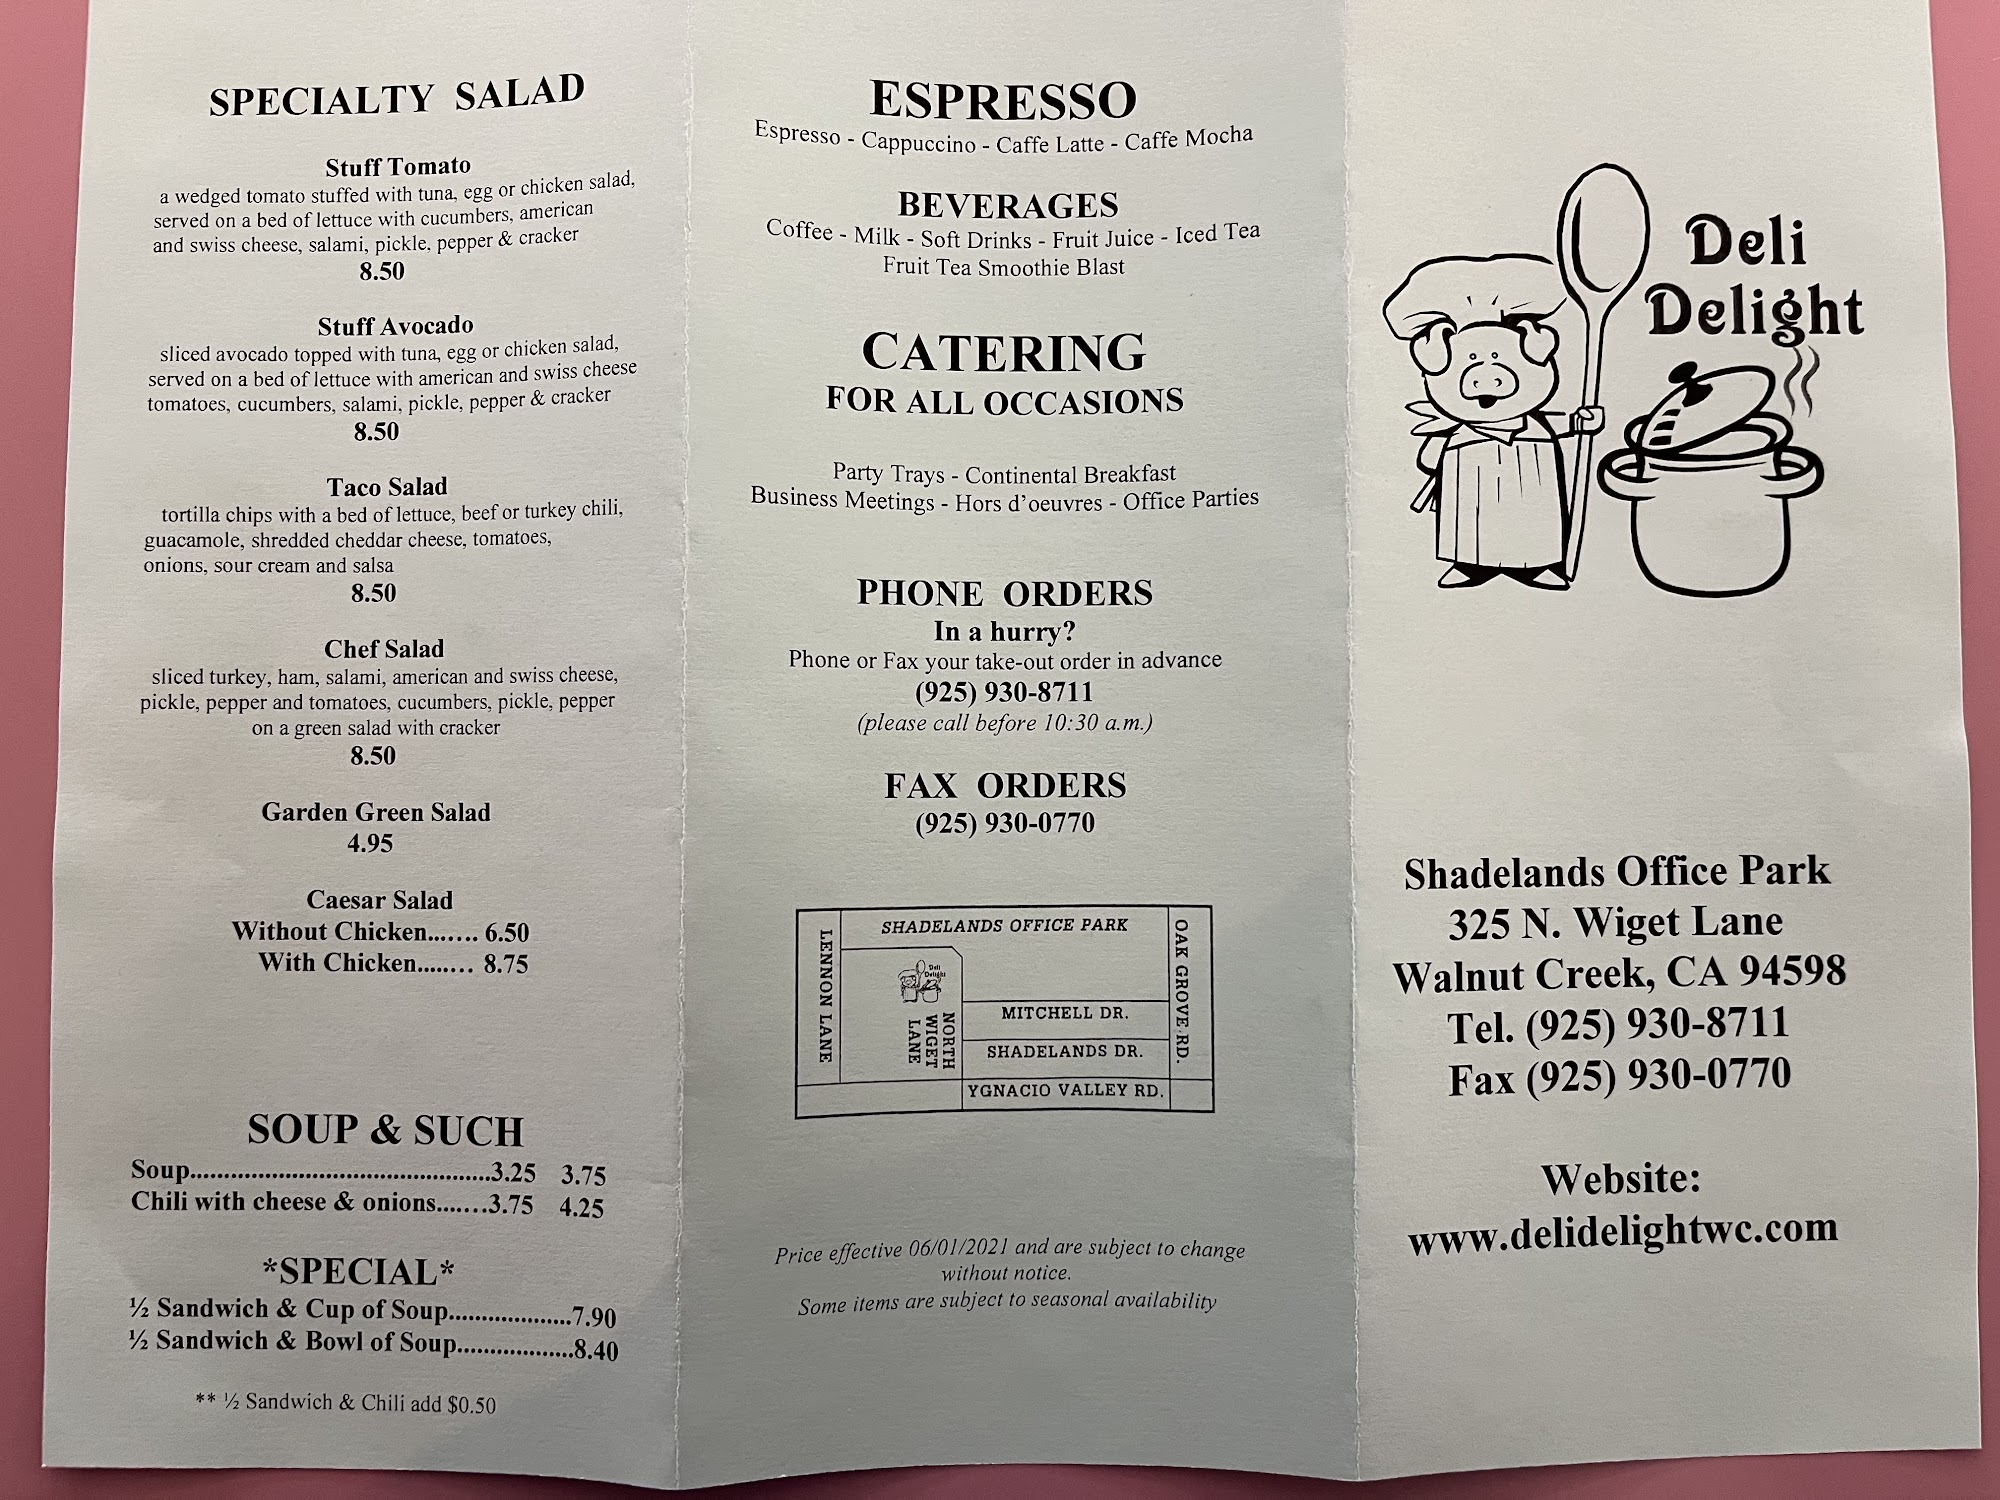 SPECIALTY SALAD
Stuff Tomato
a wedged tomato stuffed with tuna, egg or chicken salad,
served on a bed of lettuce with cucumbers, american
and swiss cheese, salami, pickle, pepper & cracker
8.50
Stuff Avocado
sliced avocado topped with tuna, egg or chicken salad,
served on a bed of lettuce with american and swiss cheese
tomatoes, cucumbers, salami, pickle, pepper & cracker
8.50
Taco Salad
tortilla chips with a bed of lettuce, beef or turkey chili,
guacamole, shredded cheddar cheese, tomatoes,
onions, sour cream and salsa
8.50
Chef Salad
sliced turkey, ham, salami, american and swiss cheese,
pickle, pepper and tomatoes, cucumbers, pickle, pepper
on a green salad with cracker
8.50
Garden Green Salad
4.95
Caesar Salad
Without Chicken........ 6.50
With Chicken......... 8.75
SOUP & SUCH
Soup.............................................3.25 3.75
Chili with cheese & onions.......3.75 4.25
*SPECIAL*
½ Sandwich & Cup of Soup...................7.90
½ Sandwich & Bowl of Soup..................8.40
** ½ Sandwich & Chili add $0.50
ESPRESSO
Espresso - Cappuccino - Caffe Latte - Caffe Mocha
BEVERAGES
Coffee - Milk - Soft Drinks - Fruit Juice - Iced Tea
Fruit Tea Smoothie Blast
CATERING
FOR ALL OCCASIONS
Party Trays - Continental Breakfast
Business Meetings - Hors d'oeuvres - Office Parties
PHONE ORDERS
In a hurry?
Phone or Fax your take-out order in advance
(925) 930-8711
(please call before 10:30 a.m.)
FAX ORDERS
(925) 930-0770
SHADELANDS OFFICE PARK
LENNON LANE
Deli
Delight
NORTH
WIGET
LANE
MITCHELL DR.
SHADELANDS DR.
YGNACIO VALLEY RD.
OAK GROVE RD.
Price effective 06/01/2021 and are subject to change
without notice.
Some items are subject to seasonal availability
Deli
Delight
Shadelands Office Park
325 N. Wiget Lane
Walnut Creek, CA 94598
Tel. (925) 930-8711
Fax (925) 930-0770
Website:
www.delidelightwc.com